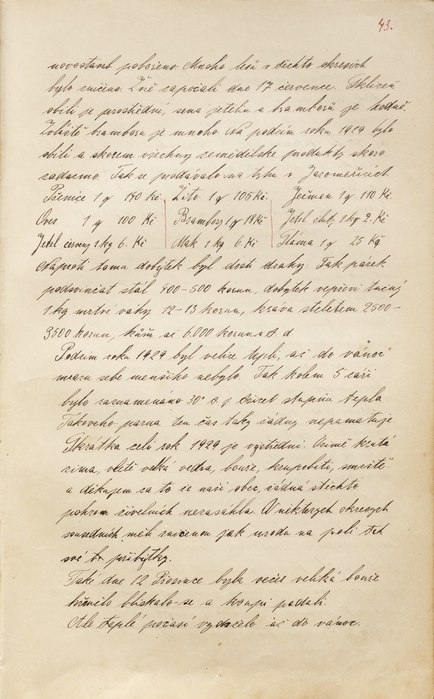 43.
novostaveb pobořeno. Mnoho lesů v těchto okresích
bylo zničeno. Žně započali dne 17 července. Sklizeň
obilí je prostřední, sena jetelu a bramborů je hodně.
Zvláště bramborů je mnoho. Na podzim roku 1929 bylo
obilí a skorem všechny zemědělské produkty skoro
zadarmo. Tak se prodávalo na trhu v Jaroměřicích
Pšenice 1 q 140 Kč Žito 1 q 106 Kč Ječmen 1 q 110 Kč
Oves 1 q 100 Kč Brambory 1 q 18 Kč Jetel 1 kg 2. Kč
Jetel červený 1 kg 6. Kč Mak 1 kg 6. Kč Sláma 1 q 25 Kč
Naproti tomu dobytek byl dosti drahý. Tak párek
podsvinčat stál 400-500 korun, dobytek vepřový tučný
1 kg mrtvé váhy 12-13 korun, kráva s teletem 2500-
3500 korun, kůň až 6000 korun a d
Podzim roku 1929 byl velice teplý, až do vánoc
mrazu sebe menšího nebylo. Tak kolem 5 září
bylo zaznamenáno 30° stupňů tepla
Takového parna ten čas taky žádný nepamatuje.
Zkrátka celý rok 1929 je výstřední. V zimě krutá
zima, v létě velká vedra, bouře, krupobití, smrště
a děkujem za to že naši obec žádná z těchto
pohrom živelních nezasáhla. V některých okresích
sousedních měli zničenou jak úrodu na poli tak
své příbytky.
Také dne 12 Prosince byla večer veliká bouře
hřmělo blýskalo-se a kroupy padali.
Ale teplé počasí vydrželo až do vánoc.